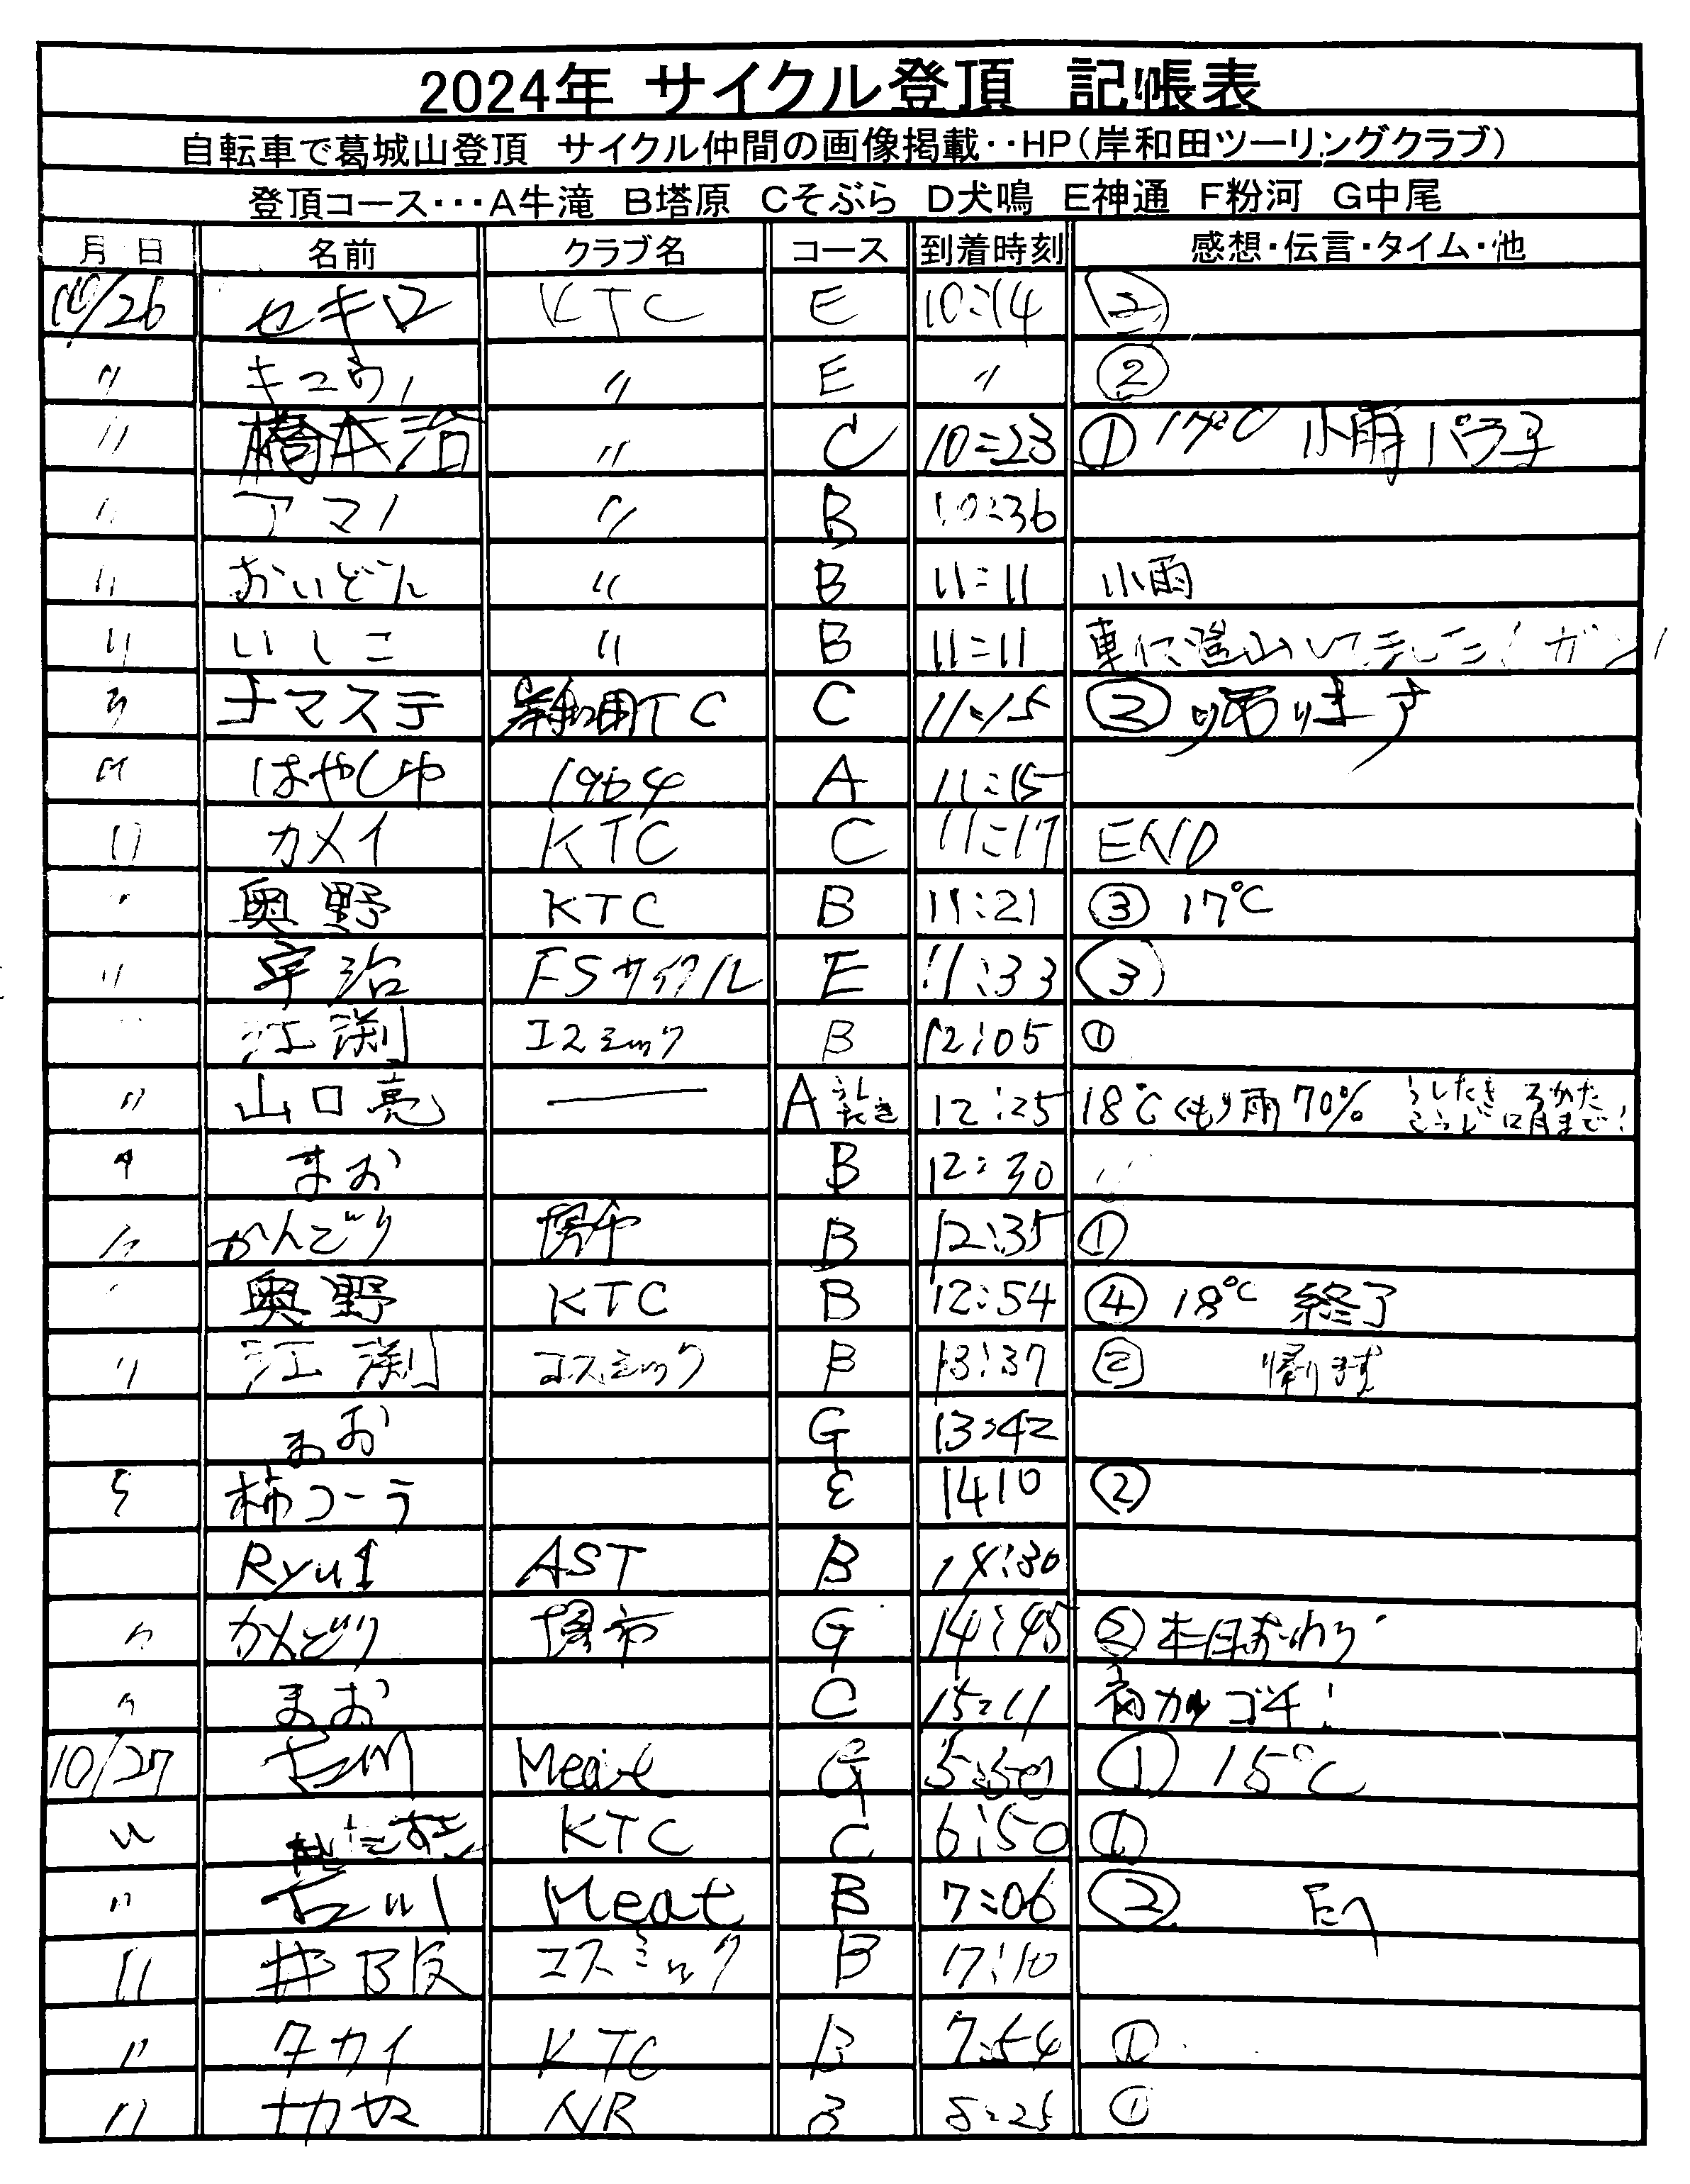 2024年 サイクル登頂 記帳表
自転車で葛城山登頂 サイクル仲間の画像掲載‥HP(岸和田ツーリングクラブ)
登頂コース･･･A牛滝 B塔原 Cそぶら D犬鳴 E神通 F粉河 G中尾
月 日 名前 クラブ名 コース 到着時刻 感想・伝言・タイム・他
10/26 セキロ KTC E 10:14 ②
〃 キュウノ 〃 E 〃 ②
〃 橋本治 〃 C 10:23 ① 17℃ 小雨 パラ子
〃 アマノ 〃 B 10:36
〃 おいどん 〃 B 11:11 小雨
〃 いしこ 〃 B 11:11 車に
〃 ナマステ 岸和田TC C 11:15 ② ります
〃 はやしゆ 1964 A 11:15
〃 カメイ KTC C 11:17 END
〃 奥野 KTC B 11:21 ③ 17℃
〃 宇治 FSサイクル E 11:33 ③
〃 江渕 コスミック B 12:05 ①
〃 山口亮 ― A うしたき 12:25 18℃ くもり雨70% うしたき ろかた こうじ 12月まで!
〃 まお B 12:30
〃 かんどり 堺市 B 12:35 ①
〃 奥野 KTC B 12:54 ④ 18℃ 終了
〃 江渕 コスミック B 13:37 ② 帰ります
まお G 13:42
〃 柿コーラ E 1410 ②
Ryu1 AST B 14:30
〃 かんどり 堺市 G 14:45 ② 本日おわり
〃 まお C 15:11
10/27 古川 Meat G 5:50 ① 15℃
〃 KTC C 6:50 ①
〃 古川 Meat B 7:06 ②
〃 井阪 コスミック B 7:10
〃 タカイ KTC B 7:54 ①
〃 ナカヤマ NR B 8:25 ①